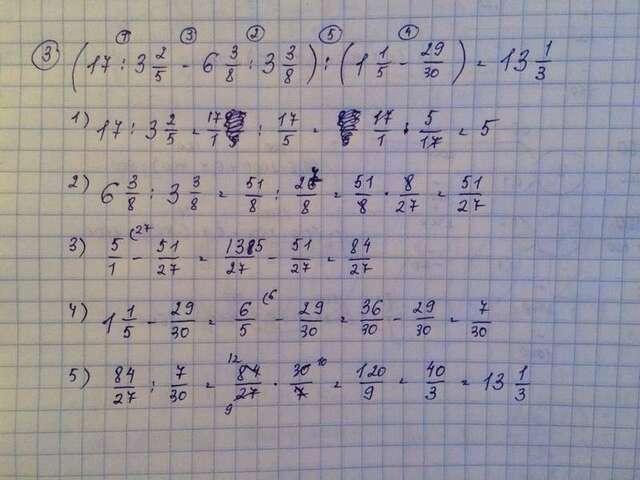 ① ③ ② ⑤ ④
③ (17 : 3 2/5 - 6 3/8 : 3 3/8) : (1 1/5 - 29/30) = 13 1/3
1) 17 : 3 2/5 = 17/1 : 17/5 = 17/1 · 5/17 = 5
2) 6 3/8 : 3 3/8 = 51/8 : 27/8 = 51/8 · 8/27 = 51/27
3) 5/1 (27 - 51/27 = 135/27 - 51/27 = 84/27
4) 1 1/5 - 29/30 = 6/5 (6 - 29/30 = 36/30 - 29/30 = 7/30
5) 84/27 : 7/30 = 12 84/27 9 · 30/7 10 = 120/9 = 40/3 = 13 1/3